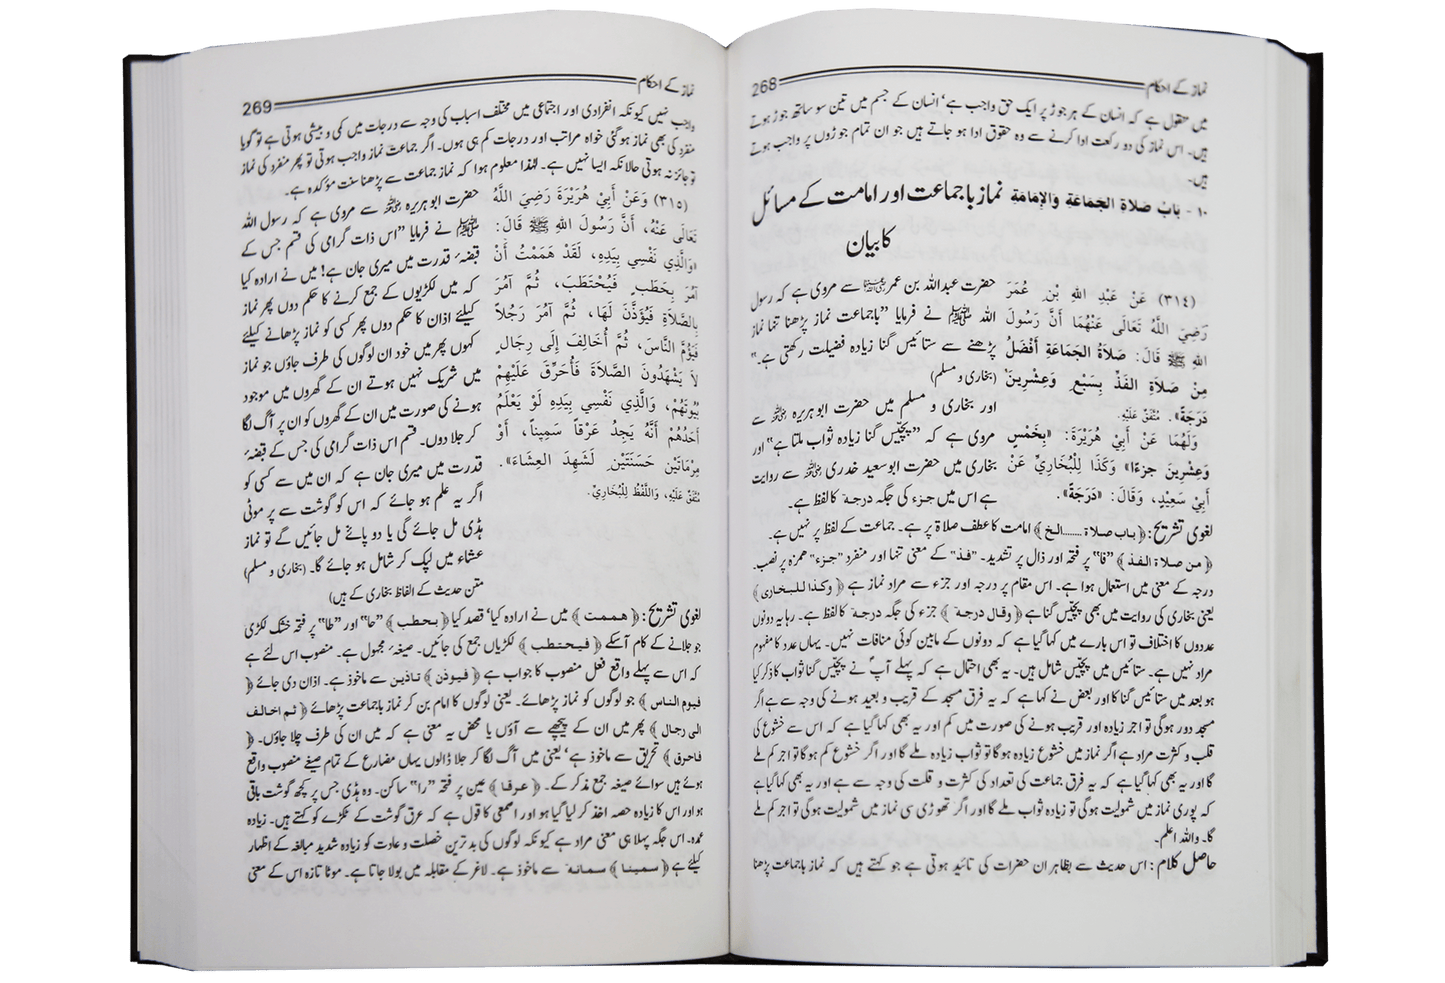 نماز کے احکام 268
میں منقول ہے کہ انسان کے ہر جوڑ پر ایک حق واجب ہے‘ انسان کے جسم میں تین سو ساٹھ جوڑ ہوتے
ہیں۔ اس نماز کی دو رکعت ادا کرنے سے وہ حقوق ادا ہو جاتے ہیں جو ان تمام جوڑوں پر واجب ہوتے
ہیں۔
۱۰ - بَابُ صَلاَةِ الجَمَاعَةِ وَالإِمَامَةِ نماز باجماعت اور امامت کے مسائل
کا بیان
(٣١٤) عَنْ عَبْدِ اللهِ بْنِ عُمَرَ
رَضِيَ اللَّهُ تَعَالَى عَنْهُمَا أَنَّ رَسُولَ
اللهِ ﷺ قَالَ: صَلاَةُ الجَمَاعَةِ أَفْضَلُ
مِنْ صَلاَةِ الفَذِّ بِسَبْعٍ وَعِشْرِينَ
دَرَجَةً». مُتَّفَقٌ عَلَيْهِ.
وَلَهُمَا عَنْ أَبِي هُرَيْرَةَ: «بِخَمْسٍ
وَعِشْرِينَ جزءًا» وَكَذَا لِلْبُخَارِيِّ عَنْ
أَبِي سَعِيدٍ، وَقَالَ: «دَرَجَةً».
حضرت عبداللہ بن عمر رضی اللہ عنہما سے مروی ہے کہ رسول
اللہ ﷺ نے فرمایا ”باجماعت نماز پڑھنا تنہا نماز
پڑھنے سے ستائیس گنا زیادہ فضیلت رکھتی ہے۔“
(بخاری و مسلم)
اور بخاری و مسلم میں حضرت ابوہریرہ رضی اللہ عنہ سے
مروی ہے کہ ”پچیس گنا زیادہ ثواب ملتا ہے“ اور
بخاری میں حضرت ابوسعید خدری رضی اللہ عنہ سے روایت
ہے اس میں جزء کی جگہ درجۃ کا لفظ ہے۔
لغوی تشریح: ﴿باب صلاة.......الخ﴾ امامت کا عطف صلاۃ پر ہے۔ جماعت کے لفظ پر نہیں ہے۔
﴿من صلاة الفذ﴾ ”فا“ پر فتحہ اور ذال پر تشدید۔ ”فذ“ کے معنی تنہا اور منفرد ”جزء“ ہمزہ پر نصب۔
درجہ کے معنی میں استعمال ہوا ہے۔ اس مقام پر درجہ اور جزء سے مراد نماز ہے ﴿وكذا للبخاري﴾
یعنی بخاری کی روایت میں بھی پچیس گنا ہے ﴿وقال درجة﴾ جزء کی جگہ درجۃ کا لفظ ہے۔ رہا یہ دونوں
عددوں کا اختلاف تو اس بارے میں کہا گیا ہے کہ دونوں کے مابین کوئی منافات نہیں۔ یہاں عدد کا مفہوم
مراد نہیں ہے۔ ستائیس میں پچیس شامل ہیں۔ یہ بھی احتمال ہے کہ پہلے آپؐ نے پچیس گنا ثواب کا ذکر کیا
ہو بعد میں ستائیس گنا کا اور بعض نے کہا ہے کہ یہ فرق مسجد کے قریب و بعید ہونے کی وجہ سے ہے اگر
مسجد دور ہوگی تو اجر زیادہ اور قریب ہونے کی صورت میں کم اور یہ بھی کہا گیا ہے کہ اس سے خشوع کی
قلت و کثرت مراد ہے اگر نماز میں خشوع زیادہ ہوگا تو ثواب زیادہ ملے گا اور اگر خشوع کم ہوگا تو اجر کم ملے
گا اور یہ بھی کہا گیا ہے کہ یہ فرق جماعت کی تعداد کی کثرت و قلت کی وجہ سے ہے اور یہ بھی کہا گیا ہے
کہ پوری نماز میں شمولیت ہوگی تو زیادہ ثواب ملے گا اور اگر تھوڑی سی نماز میں شمولیت ہوگی تو اجر کم ملے
گا۔ واللہ اعلم۔
حاصل کلام: اس حدیث سے بظاہر ان حضرات کی تائید ہوتی ہے جو کہتے ہیں کہ نماز باجماعت پڑھنا
نماز کے احکام 269
واجب نہیں کیونکہ انفرادی اور اجتماعی میں مختلف اسباب کی وجہ سے درجات میں کمی و بیشی ہوتی ہے تو گویا
منفرد کی بھی نماز ہوگئی خواہ مراتب اور درجات کم ہی ہوں۔ اگر جماعت نماز واجب ہوتی تو پھر منفرد کی نماز
تو جائز نہ ہوتی حالانکہ ایسا نہیں ہے۔ لہٰذا معلوم ہوا کہ نماز جماعت سے پڑھنا سنت مؤکدہ ہے۔
(٣١٥) وَعَنْ أَبِي هُرَيْرَةَ رَضِيَ اللَّهُ
تَعَالَى عَنْهُ، أَنَّ رَسُولَ اللهِ ﷺ قَالَ:
«وَالَّذِي نَفْسِي بِيَدِهِ، لَقَدْ هَمَمْتُ أَنْ
آمُرَ بِحَطَبٍ فَيُحْتَطَبَ، ثُمَّ آمُرَ
بِالصَّلاَةِ فَيُؤَذَّنَ لَهَا، ثُمَّ آمُرَ رَجُلاً
فَيَؤُمَّ النَّاسَ، ثُمَّ أُخَالِفَ إِلَى رِجَالٍ
لاَ يَشْهَدُونَ الصَّلاَةَ فَأُحَرِّقَ عَلَيْهِمْ
بُيُوتَهُمْ، وَالَّذِي نَفْسِي بِيَدِهِ لَوْ يَعْلَمُ
أَحَدُهُمْ أَنَّهُ يَجِدُ عَرْقاً سَمِيناً، أَوْ
مِرْمَاتَيْنِ حَسَنَتَيْنِ لَشَهِدَ العِشَاءَ».
مُتَّفَقٌ عَلَيْهِ، وَاللَّفْظُ لِلْبُخَارِيِّ.
حضرت ابوہریرہ رضی اللہ عنہ سے مروی ہے کہ رسول اللہ
ﷺ نے فرمایا ”اس ذات گرامی کی قسم جس کے
قبضۂ قدرت میں میری جان ہے! میں نے ارادہ کیا
کہ میں لکڑیوں کے جمع کرنے کا حکم دوں پھر نماز
کیلئے اذان کا حکم دوں پھر کسی کو نماز پڑھانے کیلئے
کہوں پھر میں خود ان لوگوں کی طرف جاؤں جو نماز
میں شریک نہیں ہوتے ان کے گھروں میں موجود
ہونے کی صورت میں ان کے گھروں کو ان پر آگ لگا
کر جلا دوں۔ قسم اس ذات گرامی کی جس کے قبضۂ
قدرت میں میری جان ہے کہ ان میں سے کسی کو
اگر یہ علم ہو جائے کہ اس کو گوشت سے پر موٹی
ہڈی مل جائے گی یا دو پائے مل جائیں گے تو نماز
عشاء میں لپک کر شامل ہو جائے گا۔ (بخاری و مسلم)
متن حدیث کے الفاظ بخاری کے ہیں)
لغوی تشریح: ﴿هممت﴾ میں نے ارادہ کیا‘ قصد کیا ﴿بحطب﴾ ”حا“ اور ”طا“ پر فتحہ خشک لکڑی
جو جلانے کے کام آسکے ﴿فيحتطب﴾ لکڑیاں جمع کی جائیں۔ صیغہ مجہول ہے۔ منصوب اس لئے ہے
کہ اس سے پہلے واقع فعل منصوب کا جواب ہے ﴿فيوذن﴾ تاذین سے ماخوذ ہے۔ اذان دی جائے ﴿
فيوم الناس﴾ جو لوگوں کو نماز پڑھائے۔ یعنی لوگوں کا امام بن کر نماز باجماعت پڑھائے ﴿ثم اخالف
الى رجال﴾ پھر میں ان کے پیچھے سے آؤں یا محض یہ معنی ہے کہ میں ان کی طرف چلا جاؤں۔ ﴿
فاحرق﴾ تحریق سے ماخوذ ہے‘ یعنی میں آگ لگا کر جلا ڈالوں یہاں مضارع کے تمام صیغے منصوب واقع
ہوئے ہیں سوائے صیغہ جمع مذکر کے۔ ﴿عرقا﴾ عین پر فتحہ ”را“ ساکن۔ وہ ہڈی جس پر کچھ گوشت باقی
ہو اور اس کا زیادہ حصہ اخذ کر لیا گیا ہو اور اصمعی کا قول ہے کہ عرق گوشت کے ٹکڑے کو کہتے ہیں۔ زیادہ
عمدہ۔ اس جگہ پہلا ہی معنی مراد ہے کیونکہ لوگوں کی بدترین خصلت و عادت کو زیادہ شدید مبالغہ کے اظہار
کیلئے ہے ﴿سمينا﴾ سمانة سے ماخوذ ہے۔ لاغر کے مقابلہ میں بولا جاتا ہے۔ موٹا تازہ اس کے معنی